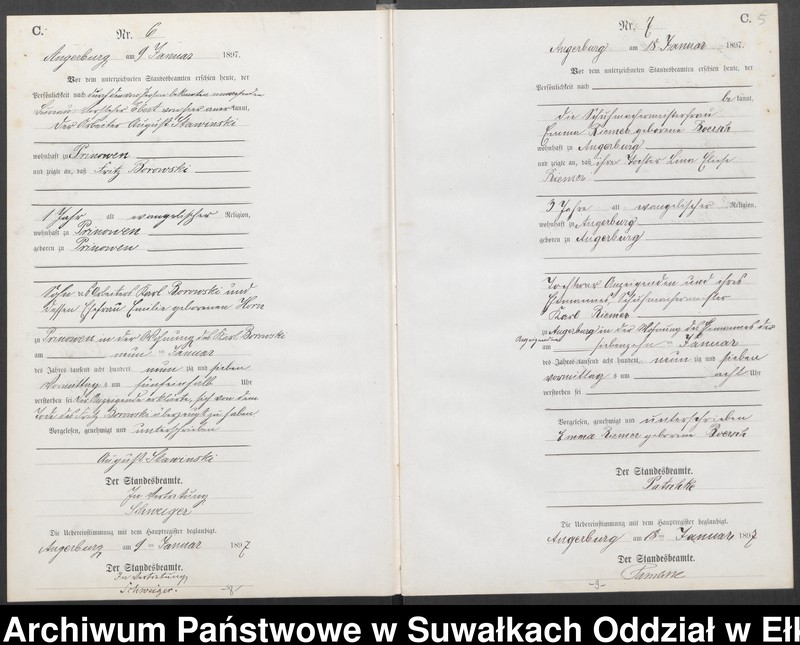 C.
Nr. 6
Angerburg am 9 Januar 1897.
Vor dem unterzeichneten Standesbeamten erschien heute, der
Persönlichkeit nach durch den
kannt,
der Arbeiter August Stawinski
wohnhaft zu Prinowen
und zeigte an, daß Fritz Borowski
1 Jahr alt evangelischer Religion,
wohnhaft zu Prinowen
geboren zu Prinowen
Sohn des Arbeiters Karl Borowski und
dessen Ehefrau Emilie geborenen Horn
zu Prinowen in der Wohnung des Karl Borowski
am neunten Januar
des Jahres tausend acht hundert neunzig und sieben
Vormittags um fünfeinhalb Uhr
verstorben sei der Anzeigende erklärte, sich von dem
Tode des Fritz Borowski überzeugt zu haben
Vorgelesen, genehmigt und unterschrieben
August Stawinski
Der Standesbeamte.
In Vertretung
Schweiger
Die Uebereinstimmung mit dem Hauptregister beglaubigt.
Angerburg am 9 ten Januar 1897
Der Standesbeamte.
In Vertretung
Schweiger.
-8-
C. 5
Nr. 7
Angerburg am 18 Januar 1897.
Vor dem unterzeichneten Standesbeamten erschien heute, der
Persönlichkeit nach
be kannt,
die Schuhmachermeisterfrau
Emma Riemer geborene
wohnhaft zu Angerburg
und zeigte an, daß ihre Tochter Lina Eliese
Riemer
3 Jahre alt evangelischer Religion,
wohnhaft zu Angerburg
geboren zu Angerburg
Tochter der Anzeigenden und ihres
Ehemannes, Schuhmachermeister
Karl Riemer
zu Angerburg in der Wohnung des Ehemannes der
Anzeigenden
am siebenzehnten Januar
des Jahres tausend acht hundert neunzig und sieben
vormittags um acht Uhr
verstorben sei
Vorgelesen, genehmigt und unterschrieben
Emma Riemer geborene
Der Standesbeamte.
Die Uebereinstimmung mit dem Hauptregister beglaubigt.
Angerburg am 18 ten Januar 1897
Der Standesbeamte.
-9-
Archiwum Państwowe w Suwałkach Oddział w Ełk